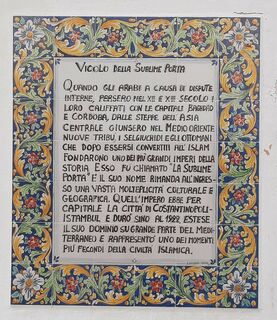 Vicolo della Sublime Porta
Quando gli Arabi a causa di dispute
interne, persero nel XII e XIII secolo i
loro califfati con le capitali Bagdad
e Cordoba, dalle steppe dell'Asia
Centrale giunsero nel Medio Oriente
nuove tribù, i Selgiuchidi e gli Ottomani
che dopo essersi convertiti all'Islam
fondarono uno dei più grandi imperi della
storia. Esso fu chiamato "La Sublime
Porta" e il suo nome rimanda all'ingres-
so una vasta molteplicità culturale e
geografica. Quell'impero ebbe per
capitale la città di Costantinopoli-
Istambul e durò sino al 1922. Estese
il suo dominio su grande parte del Medi-
terraneo e rappresentò uno dei momenti
più fecondi della civiltà islamica.